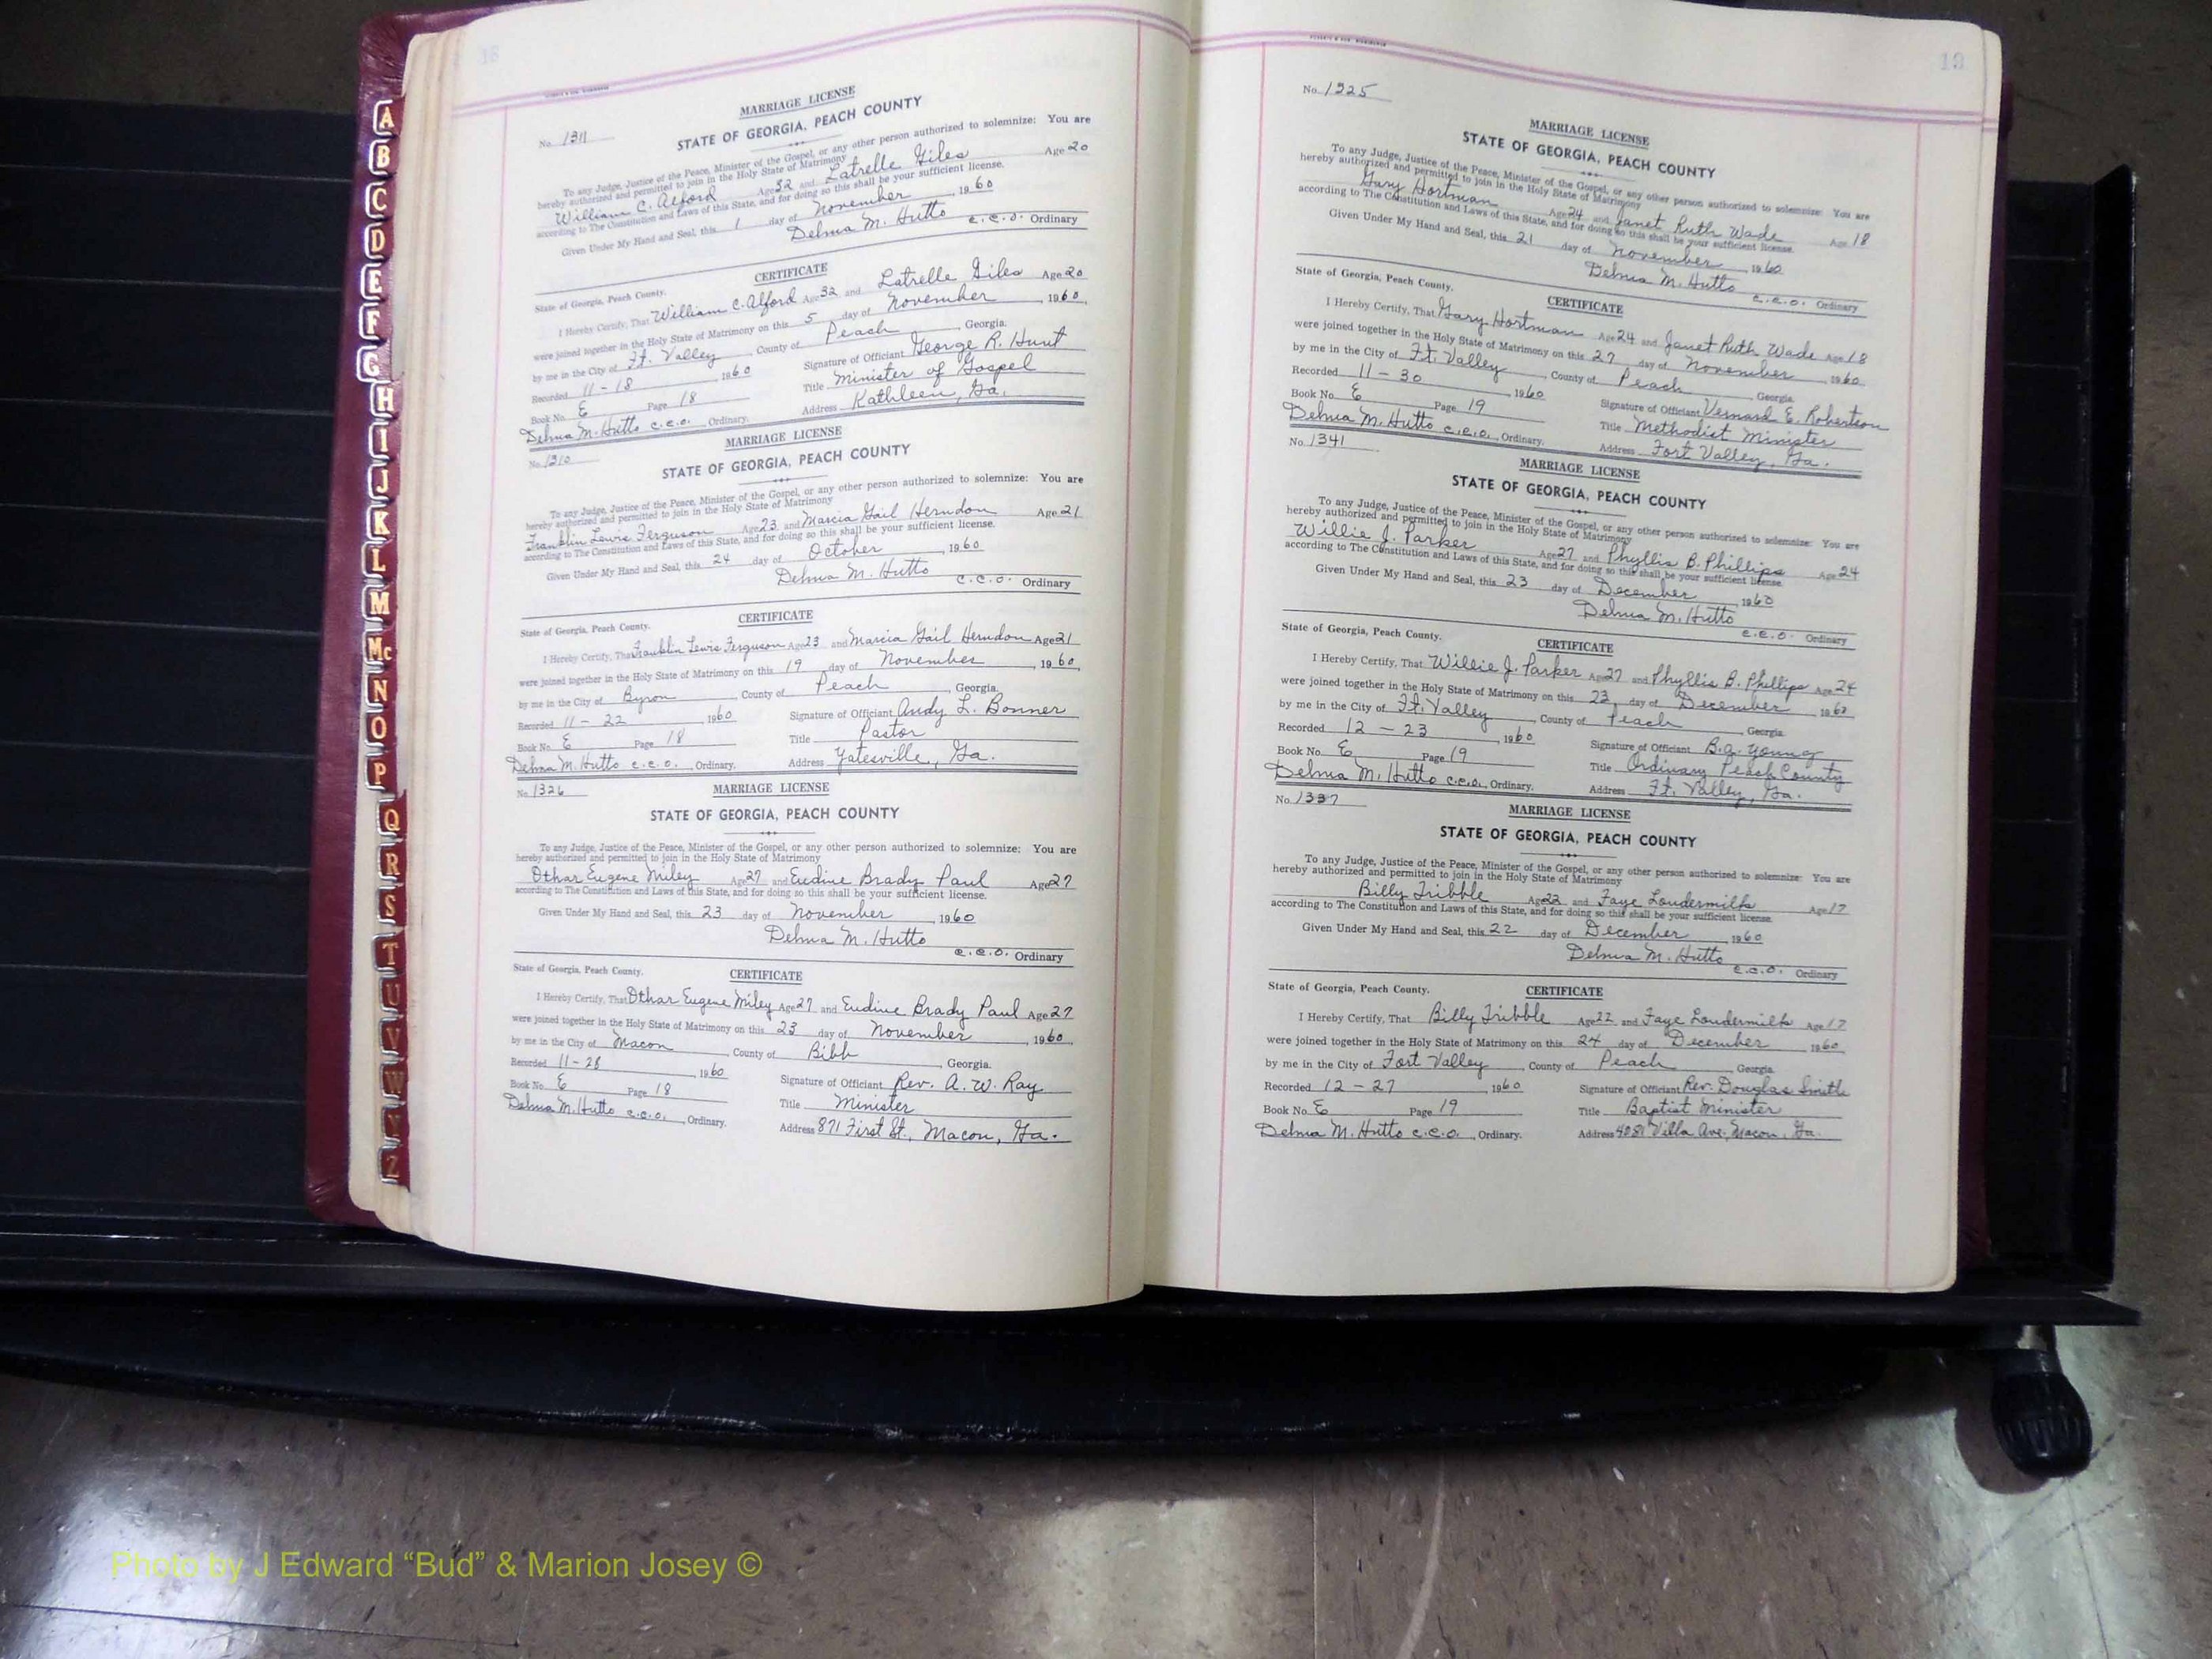 A
B
C
D
E
F
G
H
I
J
K
L
M
Mc
N
O
P
Q
R
S
T
U
V
W
Y
Z
18
MARRIAGE LICENSE
No. 1311
STATE OF GEORGIA, PEACH COUNTY
To any Judge, Justice of the Peace, Minister of the Gospel, or any other person authorized to solemnize: You are
hereby authorized and permitted to join in the Holy State of Matrimony
William C. Alford Age 32 and Latrelle Giles Age 20
according to The Constitution and Laws of this State, and for doing so this shall be your sufficient license.
Given Under My Hand and Seal, this 1 day of November, 1960
Delma M. Hutto c.c.o. Ordinary
CERTIFICATE
State of Georgia, Peach County.
I Hereby Certify, That William C. Alford Age 32 and Latrelle Giles Age 20
were joined together in the Holy State of Matrimony on this 5 day of November, 1960,
by me in the City of Ft. Valley, County of Peach, Georgia.
Recorded 11-18, 1960 Signature of Officiant George R. Hunt
Book No. E Page 18 Title Minister of Gospel
Delma M. Hutto c.c.o., Ordinary. Address Kathleen, Ga.
MARRIAGE LICENSE
No. 1310
STATE OF GEORGIA, PEACH COUNTY
To any Judge, Justice of the Peace, Minister of the Gospel, or any other person authorized to solemnize: You are
hereby authorized and permitted to join in the Holy State of Matrimony
Franklin Lewis Ferguson Age 23 and Marcia Gail Herndon Age 21
according to The Constitution and Laws of this State, and for doing so this shall be your sufficient license.
Given Under My Hand and Seal, this 24 day of October, 1960
Delma M. Hutto c.c.o. Ordinary
CERTIFICATE
State of Georgia, Peach County.
I Hereby Certify, That Franklin Lewis Ferguson Age 23 and Marcia Gail Herndon Age 21
were joined together in the Holy State of Matrimony on this 19 day of November, 1960,
by me in the City of Byron, County of Peach, Georgia.
Recorded 11-22, 1960 Signature of Officiant Andy L. Bonner
Book No. E Page 18 Title Pastor
Delma M. Hutto c.c.o., Ordinary. Address Yatesville, Ga.
No. 1326 MARRIAGE LICENSE
STATE OF GEORGIA, PEACH COUNTY
To any Judge, Justice of the Peace, Minister of the Gospel, or any other person authorized to solemnize: You are
hereby authorized and permitted to join in the Holy State of Matrimony
Othar Eugene Miley Age 27 and Eudine Brady Paul Age 27
according to The Constitution and Laws of this State, and for doing so this shall be your sufficient license.
Given Under My Hand and Seal, this 23 day of November, 1960
Delma M. Hutto
c.c.o. Ordinary
State of Georgia, Peach County. CERTIFICATE
I Hereby Certify, That Othar Eugene Miley Age 27 and Eudine Brady Paul Age 27
were joined together in the Holy State of Matrimony on this 23 day of November, 1960,
by me in the City of Macon, County of Bibb, Georgia.
Recorded 11-28, 1960 Signature of Officiant Rev. A. W. Ray
Book No. E Page 18 Title Minister
Delma M. Hutto c.c.o., Ordinary. Address 871 First St., Macon, Ga.
19
No. 1325
MARRIAGE LICENSE
STATE OF GEORGIA, PEACH COUNTY
To any Judge, Justice of the Peace, Minister of the Gospel, or any other person authorized to solemnize: You are
hereby authorized and permitted to join in the Holy State of Matrimony
Gary Hortman Age 24 and Janet Ruth Wade Age 18
according to The Constitution and Laws of this State, and for doing so this shall be your sufficient license.
Given Under My Hand and Seal, this 21 day of November, 1960
Delma M. Hutto c.c.o. Ordinary
State of Georgia, Peach County. CERTIFICATE
I Hereby Certify, That Gary Hortman Age 24 and Janet Ruth Wade Age 18
were joined together in the Holy State of Matrimony on this 27 day of November, 1960,
by me in the City of Ft. Valley, County of Peach, Georgia.
Recorded 11-30, 1960 Signature of Officiant Vernard E. Robertson
Book No. E Page 19 Title Methodist Minister
Delma M. Hutto c.c.o., Ordinary. Address Fort Valley, Ga.
No. 1341
MARRIAGE LICENSE
STATE OF GEORGIA, PEACH COUNTY
To any Judge, Justice of the Peace, Minister of the Gospel, or any other person authorized to solemnize: You are
hereby authorized and permitted to join in the Holy State of Matrimony
Willie J. Parker Age 27 and Phyllis B. Phillips Age 24
according to The Constitution and Laws of this State, and for doing so this shall be your sufficient license.
Given Under My Hand and Seal, this 23 day of December, 1960
Delma M. Hutto
c.c.o. Ordinary
State of Georgia, Peach County. CERTIFICATE
I Hereby Certify, That Willie J. Parker Age 27 and Phyllis B. Phillips Age 24
were joined together in the Holy State of Matrimony on this 23 day of December, 1960,
by me in the City of Ft. Valley, County of Peach, Georgia
Recorded 12-23, 1960 Signature of Officiant B.A. Young
Book No. E Page 19 Title Ordinary Peach County
Delma M. Hutto c.c.o., Ordinary. Address Ft. Valley, Ga.
No. 1337
MARRIAGE LICENSE
STATE OF GEORGIA, PEACH COUNTY
To any Judge, Justice of the Peace, Minister of the Gospel, or any other person authorized to solemnize: You are
hereby authorized and permitted to join in the Holy State of Matrimony
Billy Tribble Age 22 and Faye Loudermilk Age 17
according to The Constitution and Laws of this State, and for doing so this shall be your sufficient license.
Given Under My Hand and Seal, this 22 day of December, 1960
Delma M. Hutto
c.c.o. Ordinary
State of Georgia, Peach County. CERTIFICATE
I Hereby Certify, That Billy Tribble Age 22 and Faye Loudermilk Age 17
were joined together in the Holy State of Matrimony on this 24 day of December, 1960,
by me in the City of Fort Valley, County of Peach, Georgia
Recorded 12-27, 1960 Signature of Officiant Rev. Douglas Smith
Book No. E Page 19 Title Baptist Minister
Delma M. Hutto c.c.o., Ordinary. Address Villa Ave., Macon, Ga.
Photo by J Edward “Bud” & Marion Josey ©